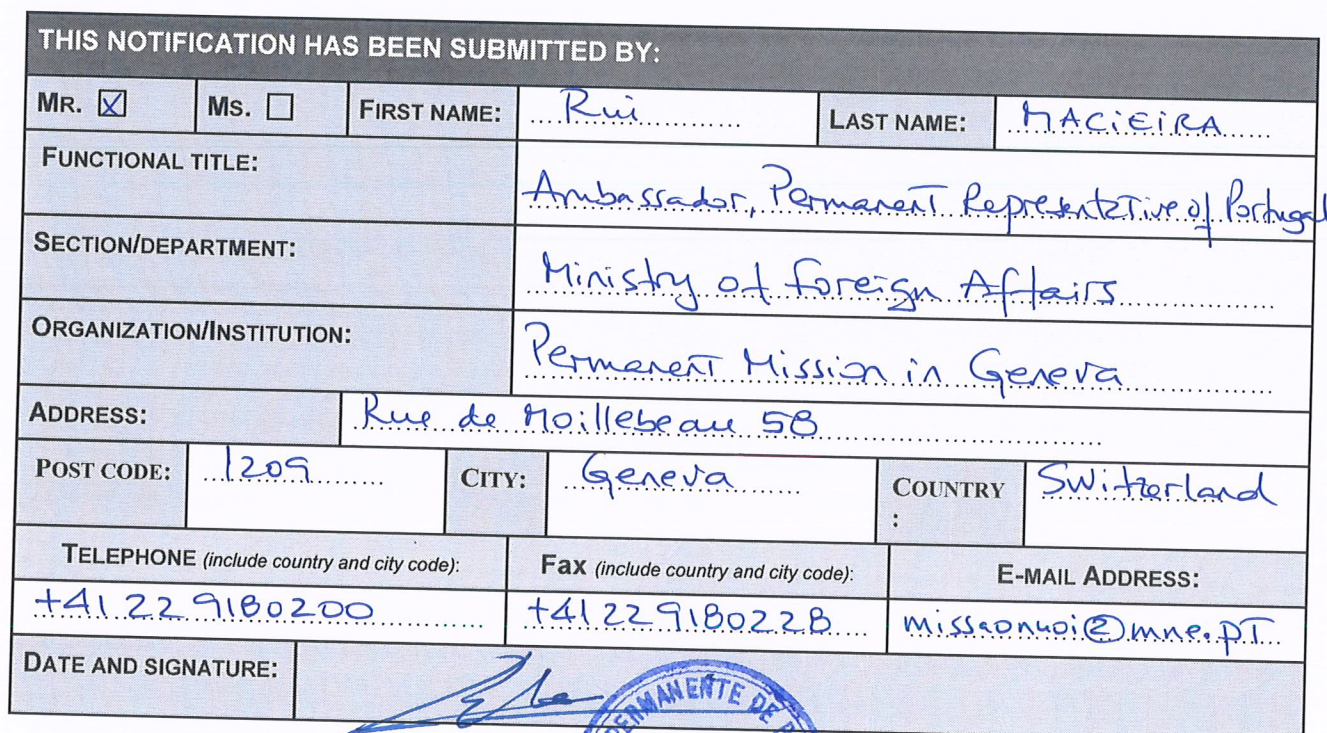 THIS NOTIFICATION HAS BEEN SUBMITTED BY:
MR. ☒ MS. ☐ FIRST NAME: Rui LAST NAME: MACIEIRA
FUNCTIONAL TITLE: Ambassador, Permanent Representative of Portugal
SECTION/DEPARTMENT: Ministry of Foreign Affairs
ORGANIZATION/INSTITUTION: Permanent Mission in Geneva
ADDRESS: Rue de Moillebeau 58
POST CODE: 1209 CITY: Geneva COUNTRY : Switzerland
TELEPHONE (include country and city code): Fax (include country and city code): E-MAIL ADDRESS:
+41 22 9180200 +41 22 9180228 missaonuoi@mne.pt
DATE AND SIGNATURE:
PERMANENTE DE